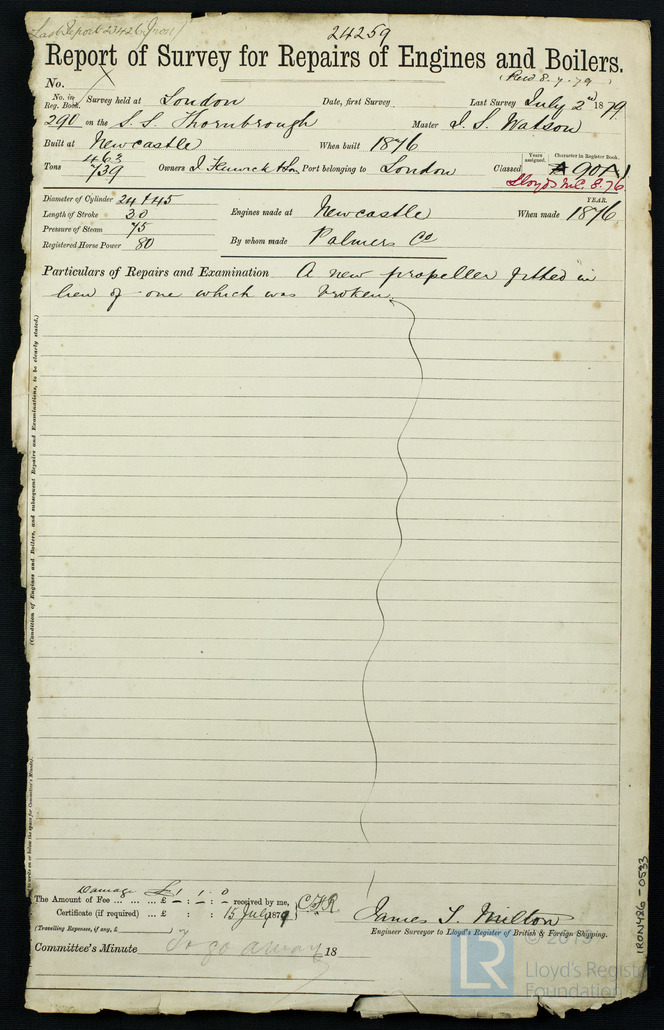 Last Report 23426 Iron
24259
Report of Survey for Repairs of Engines and Boilers.
(Recd 8.7.79)
No.
No. in Reg. Book. Survey held at London Date, first Survey Last Survey July 2nd 1879
290 on the S.S. Thornbrough Master J. S. Watson
Built at Newcastle When built 1876
Tons 463 739 Owners J. Fenwick & Son Port belonging to London Classed Years assigned. Character in Register Book. 90A1
Lloyds M.C. 8.76
Diameter of Cylinder 24 & 45
Length of Stroke 30
Pressure of Steam 75
Registered Horse Power 80
Engines made at Newcastle YEAR. When made 1876
By whom made Palmers Co
Particulars of Repairs and Examination A new propeller fitted in
lieu of one which was broken.
(Condition of Engines and Boilers, and subsequent Repairs and Examinations, to be clearly stated.)
Damage £1 : 1 : 0
The Amount of Fee ... ... ... £ – : – : – received by me,
Certificate (if required) ... £ : : 15 July 1879
(Travelling Expenses, if any, £ )
James T. Milton
Engineer Surveyor to Lloyd's Register of British & Foreign Shipping.
Committee's Minute 18
IRON486-0533
LR © 2019
Lloyd's Register
Foundation